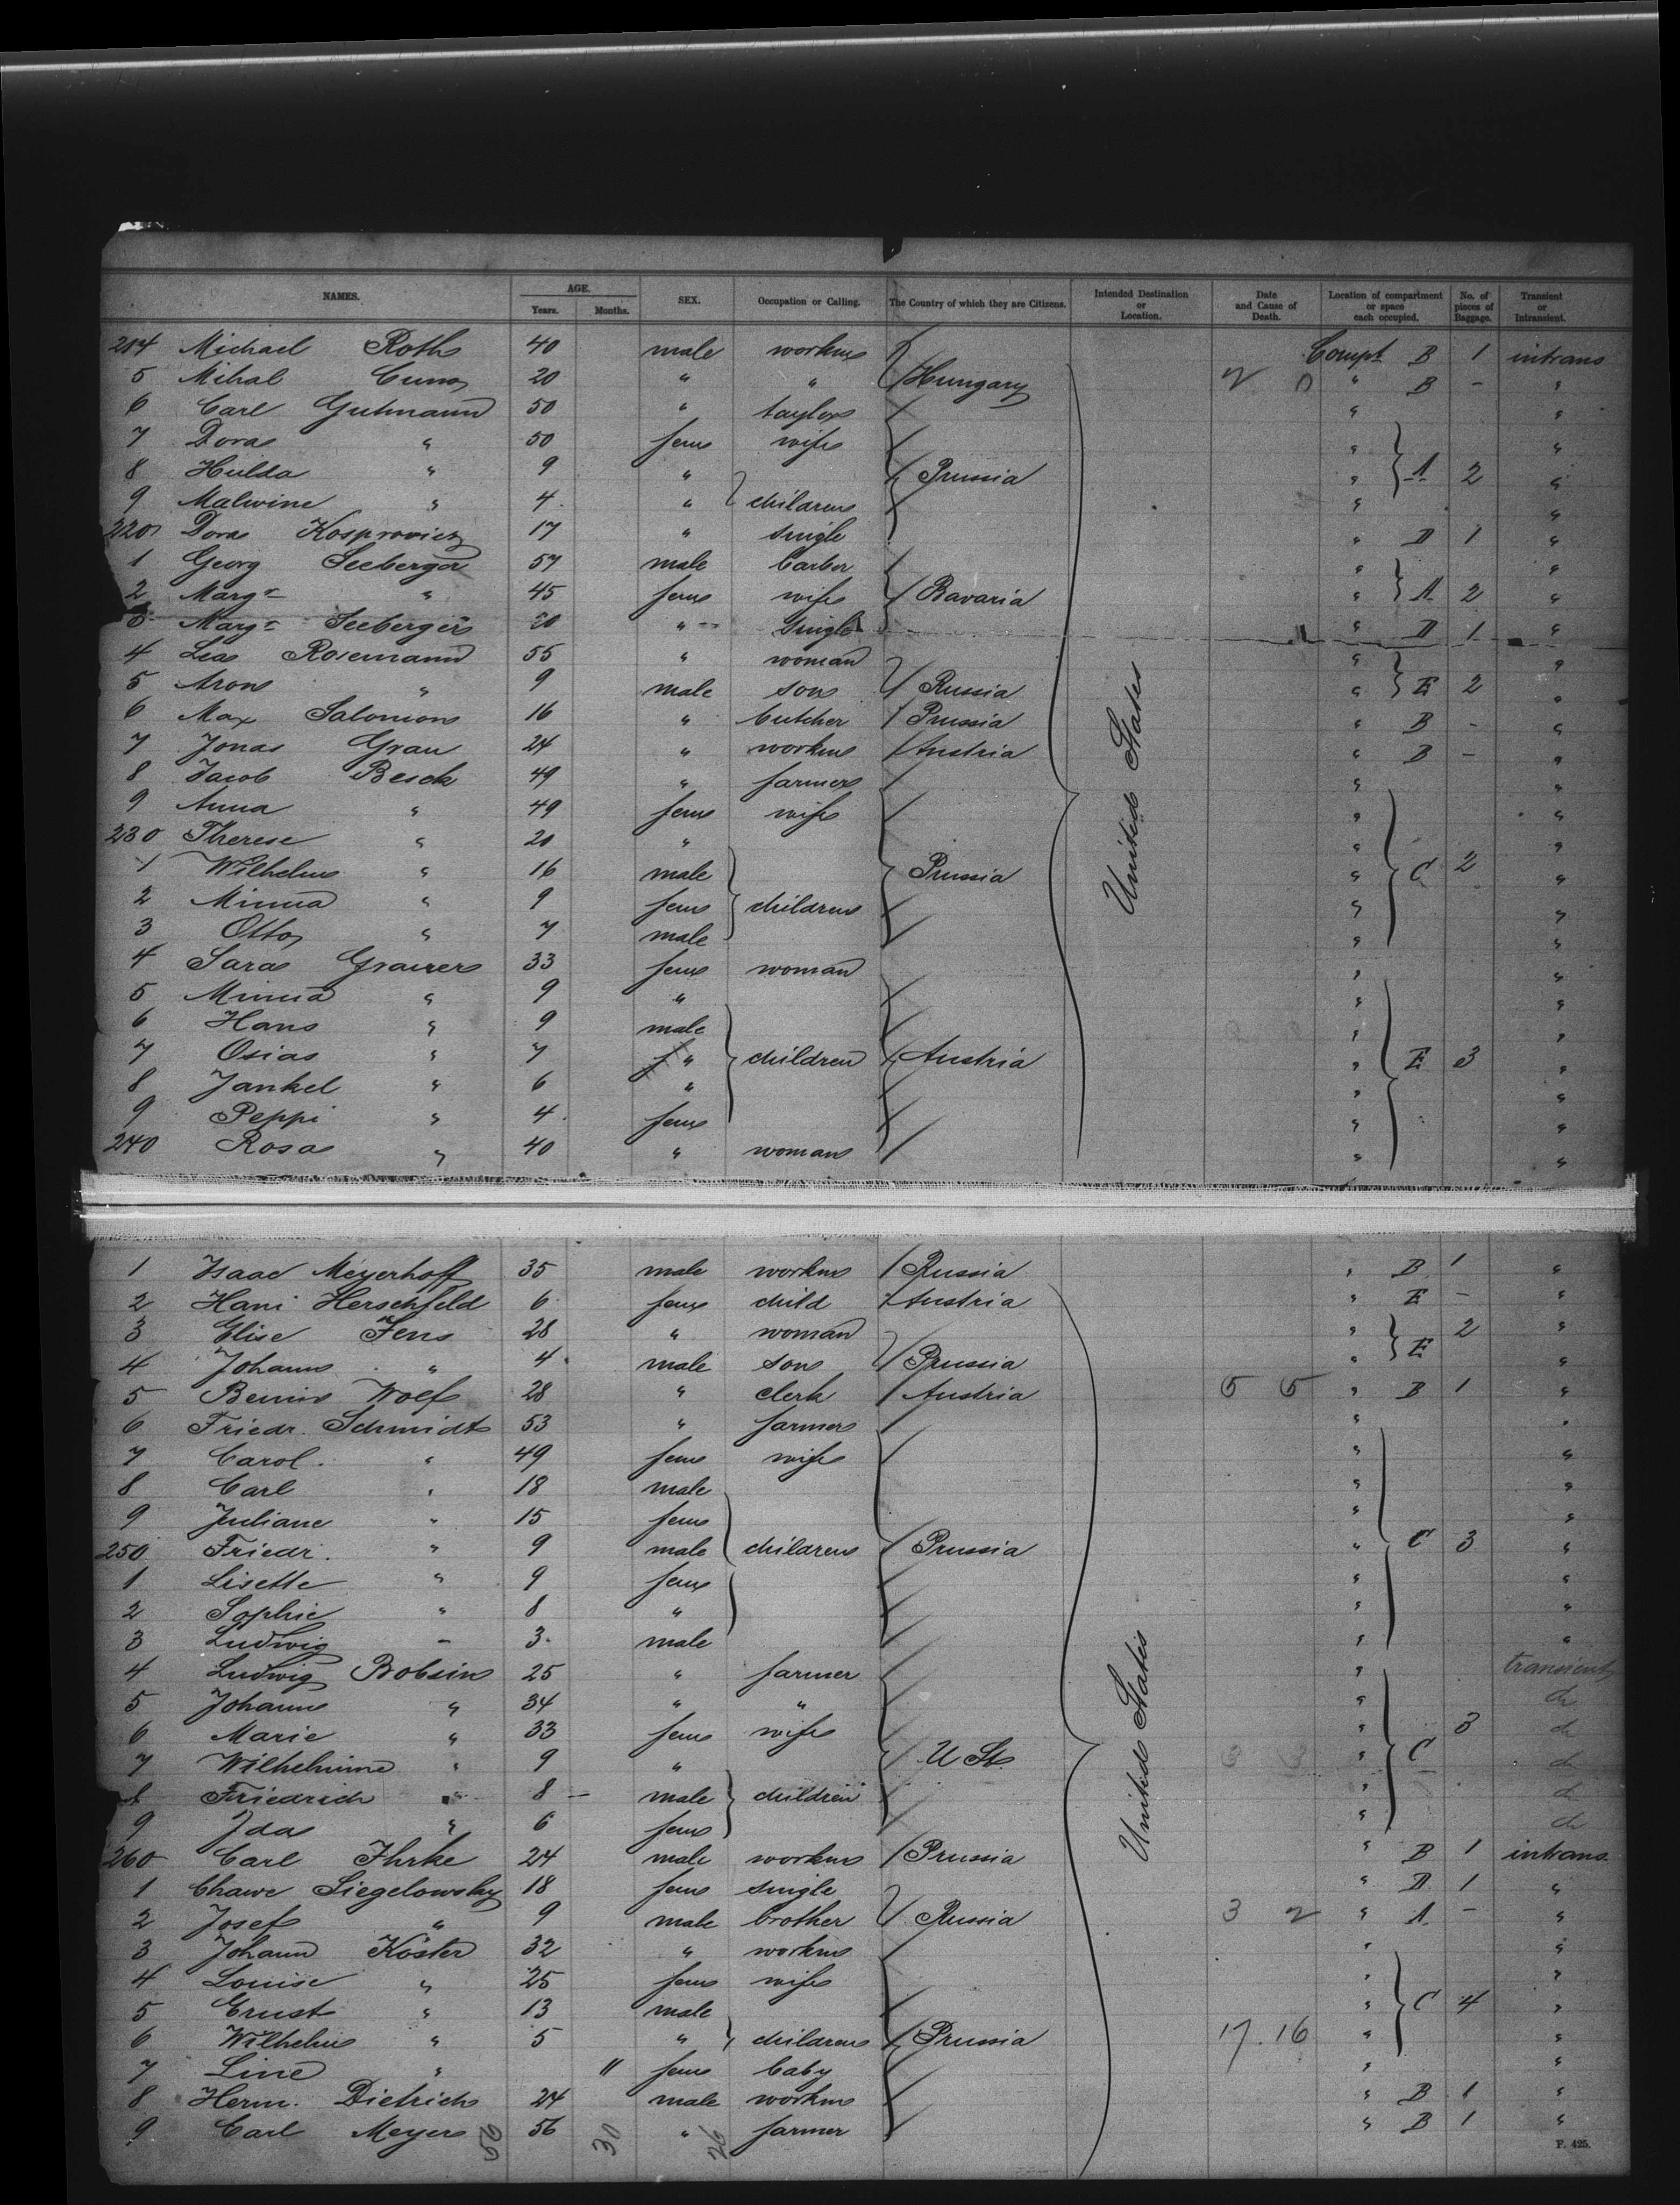 NAMES. AGE. SEX. Occupation or Calling. The Country of which they are Citizens. Intended Destination or Location. Date and Cause of Death. Location of compartment or space each occupied. No. of pieces of Baggage. Transient or Intransient.
Years. Months.
214 Michael Roth 40 male workm Compt B 1 intrans
5 Mihal 20 " " Hungary 2 0 " B - "
6 Carl Gutmann 50 " taylor " "
7 Dora " 50 fem wife " "
8 Hulda " 9 " Prussia " A 2 "
9 Malwine " 4 " children " "
220 Dora Kosprowicz 17 " single " D 1 "
1 Georg Seeberger 57 male barber " "
2 Marg " 45 fem wife Bavaria " A 2 "
3 Marg Seeberger 20 " single " D 1 "
4 Lea Rosemann 55 " woman " "
5 Aron " 9 male son Russia " E 2 "
6 Max Salomon 16 " butcher Prussia " B - "
7 Jonas Grau 24 " workm Austria " B - "
8 Jacob Besch 49 " farmer " "
9 Anna " 49 fem wife " "
230 Therese " 20 " " "
1 Wilhelm " 16 male Prussia " C 2 "
2 Minna " 9 fem children " "
3 Otto " 7 male " "
4 Sara Graurer 33 fem woman " "
5 Minna " 9 " " "
6 Hans " 9 male " "
7 Osias " 7 " children Austria " E 3 "
8 Jankel " 6 " " "
9 Peppi " 4 fem " "
240 Rosa " 40 " woman " "
United States
1 Isaac Meyerhoff 35 male workm Russia " B 1 "
2 Hani Herschfeld 6 fem child Austria " E - "
3 Elise Jens 28 " woman " 2 "
4 Johann " 4 male son Prussia " E "
5 Benno Wolf 28 " clerk Austria 5 5 " B 1 "
6 Friedr. Schmidt 53 " farmer " "
7 Carol. " 49 fem wife " "
8 Carl " 18 male " "
9 Juliane " 15 fem " "
250 Friedr. " 9 male children Prussia " C 3 "
1 Lisette " 9 fem " "
2 Sophie " 8 " " "
3 Ludwig - 3 male " "
4 Ludwig Bobsin 25 " farmer " transient
5 Johann " 34 " " " do
6 Marie " 33 fem wife " 3 do
7 Wilhelmine " 9 " U St. 3 3 " C do
8 Friedrich " 8 - male children " do
9 Ida " 6 fem " do
260 Carl Ihrke 24 male workm Prussia " B 1 intrans.
1 Chawe Siegelowsky 18 fem single " D 1 "
2 Josef " 9 male brother Russia 3 2 " A - "
3 Johann Köster 32 " workm " "
4 Louise " 25 fem wife " "
5 Ernst " 13 male " C 4 "
6 Wilhelm " 5 " children Prussia 17. 16 " "
7 Line " 11 fem baby " "
8 Herm. Dietrich 24 male workm " B 1 "
9 Carl Meyer 56 " farmer " B 1 "
United States
30 26
F. 425.